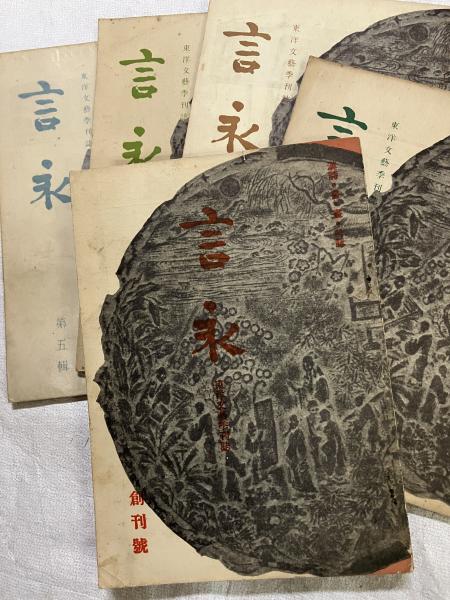 言永
第五輯
東洋文藝季刊誌
言永
東洋文藝季刊誌
言永
東洋文藝季刊
言
言永
東洋文藝季刊誌
創刊號